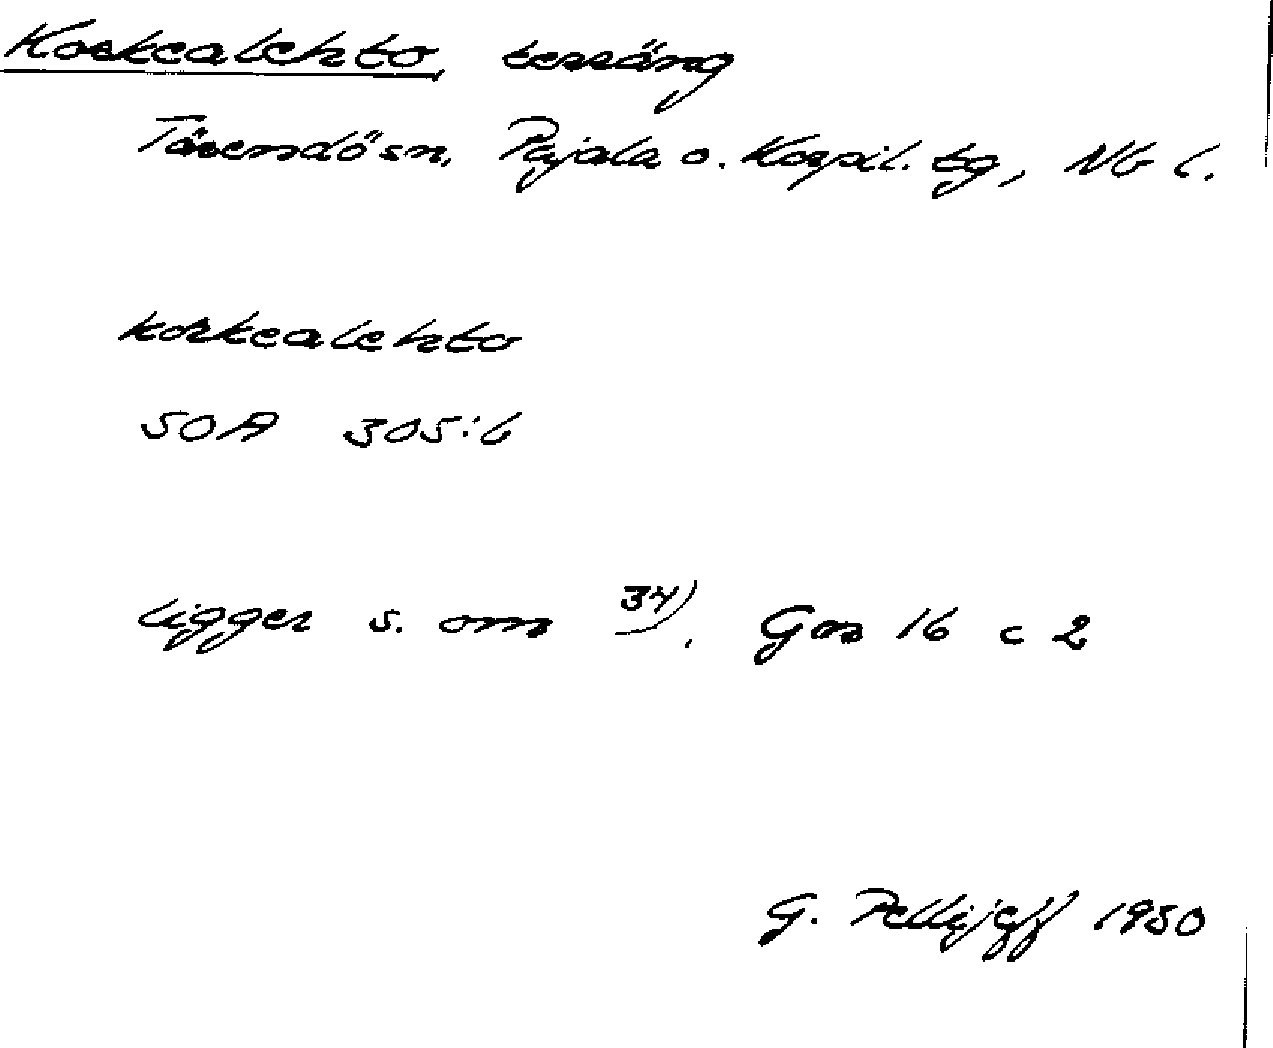 Korkealehto, terräng
Tärendö sn, Pajala o. Korpil. tg, Nb l.
kórkealehto
SOA 305:6
ligger s. om 34). Gm 16 c 2
G. Pellijeff 1950